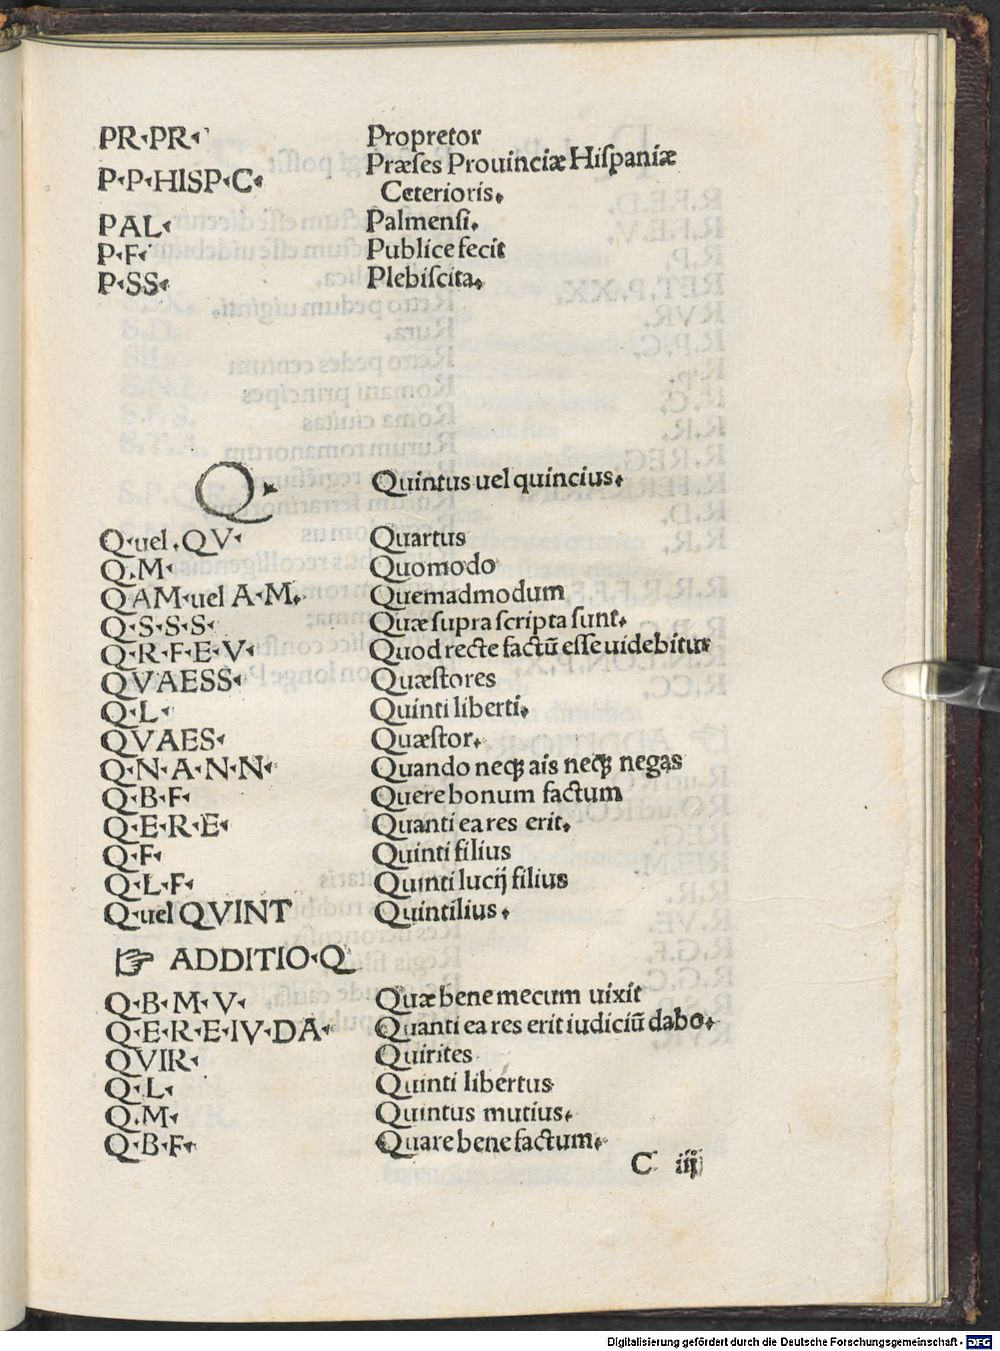 PR·PR· Propretor
P·P·HISP·C· Præses Prouinciæ Hiſpaniæ
Ceterioris.
PAL· Palmenſi.
P·F· Publice fecit
P·SS· Plebiſcita.
Q· Quintus uel quincius.
Q·uel.QV· Quartus
Q.M· Quomodo
QAM·uel A·M. Quemadmodum
Q·S·S·S· Quæ ſupra ſcripta ſunt.
Q·R·F·E·V· Quod recte factū eſſe uidebitur
QVAESS· Quæſtores
Q·L· Quinti liberti.
QVAES· Quæſtor.
Q·N·A·N·N· Quando neqꝫ ais neqꝫ negas
Q·B·F· Quere bonum factum
Q·E·R·E· Quanti ea res erit.
Q·F· Quinti filius
Q·L·F· Quinti lucij filius
Q·uel QVINT Quintilius.
☞ ADDITIO·Q
Q·B·M·V· Quæ bene mecum uixit
Q·E·R·E·IV·DA· Quanti ea res erit iudiciū dabo.
QVIR· Quirites
Q·L· Quinti libertus
Q.M· Quintus mutius.
Q·B·F· Quare bene factum.
C iij
Digitalisierung gefördert durch die Deutsche Forschungsgemeinschaft - DFG